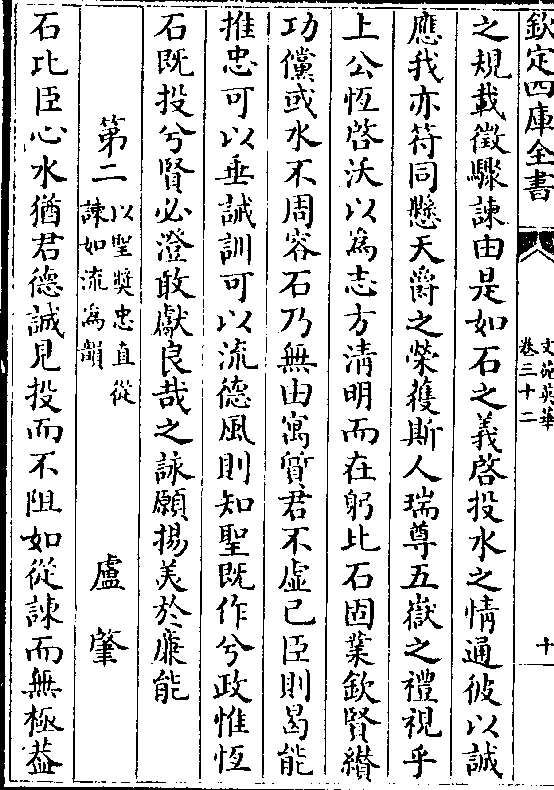 欽定四庫全書
文苑英華
卷三十二
十一
之規載徵驟諫由是如石之義啓投水之情通彼以誠
應我亦符同懸天爵之榮獲斯人瑞尊五嶽之禮視乎
上公恆啓沃以為志方清明而在躬比石固業欽賢纘
功儻或水不周容石乃無由寓質君不虚已臣則曷能
推忠可以垂誠訓可以流德風則知聖既作兮政惟恆
石既投兮賢必澄敢獻良哉之詠願揚美於亷能
第二
以聖奬忠直從
諫如流為韻
盧肇
石比臣心水猶君德誠見投而不阻如從諫而無極葢